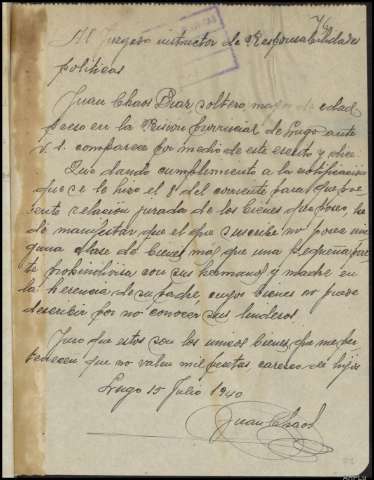 Al Juzgado instructor de Responsabilidades
politicas
Juan Chaos Diaz soltero mayor de edad
preso en la Prision Provincial de Lugo ante
V. S. comparece por medio de este escrito y dice
Que dando cumplimiento a la notificacion
que se le hizo el 8 del corriente para que pre
sente relacion jurada de los bienes que posee, he
de manifestar que el que suscribe no posee nin
guna clase de bienes mas que una pequeña par
te proindivisa con sus hermanos y madre en
la herencia de su padre, cuyos bienes no puede
describir por no conocer sus linderos.
Juro que estos son los unicos bienes que me per
tenecen que no valen mil pesetas carezco de hijos
Lugo 15 Julio 1940
Juan Chaos